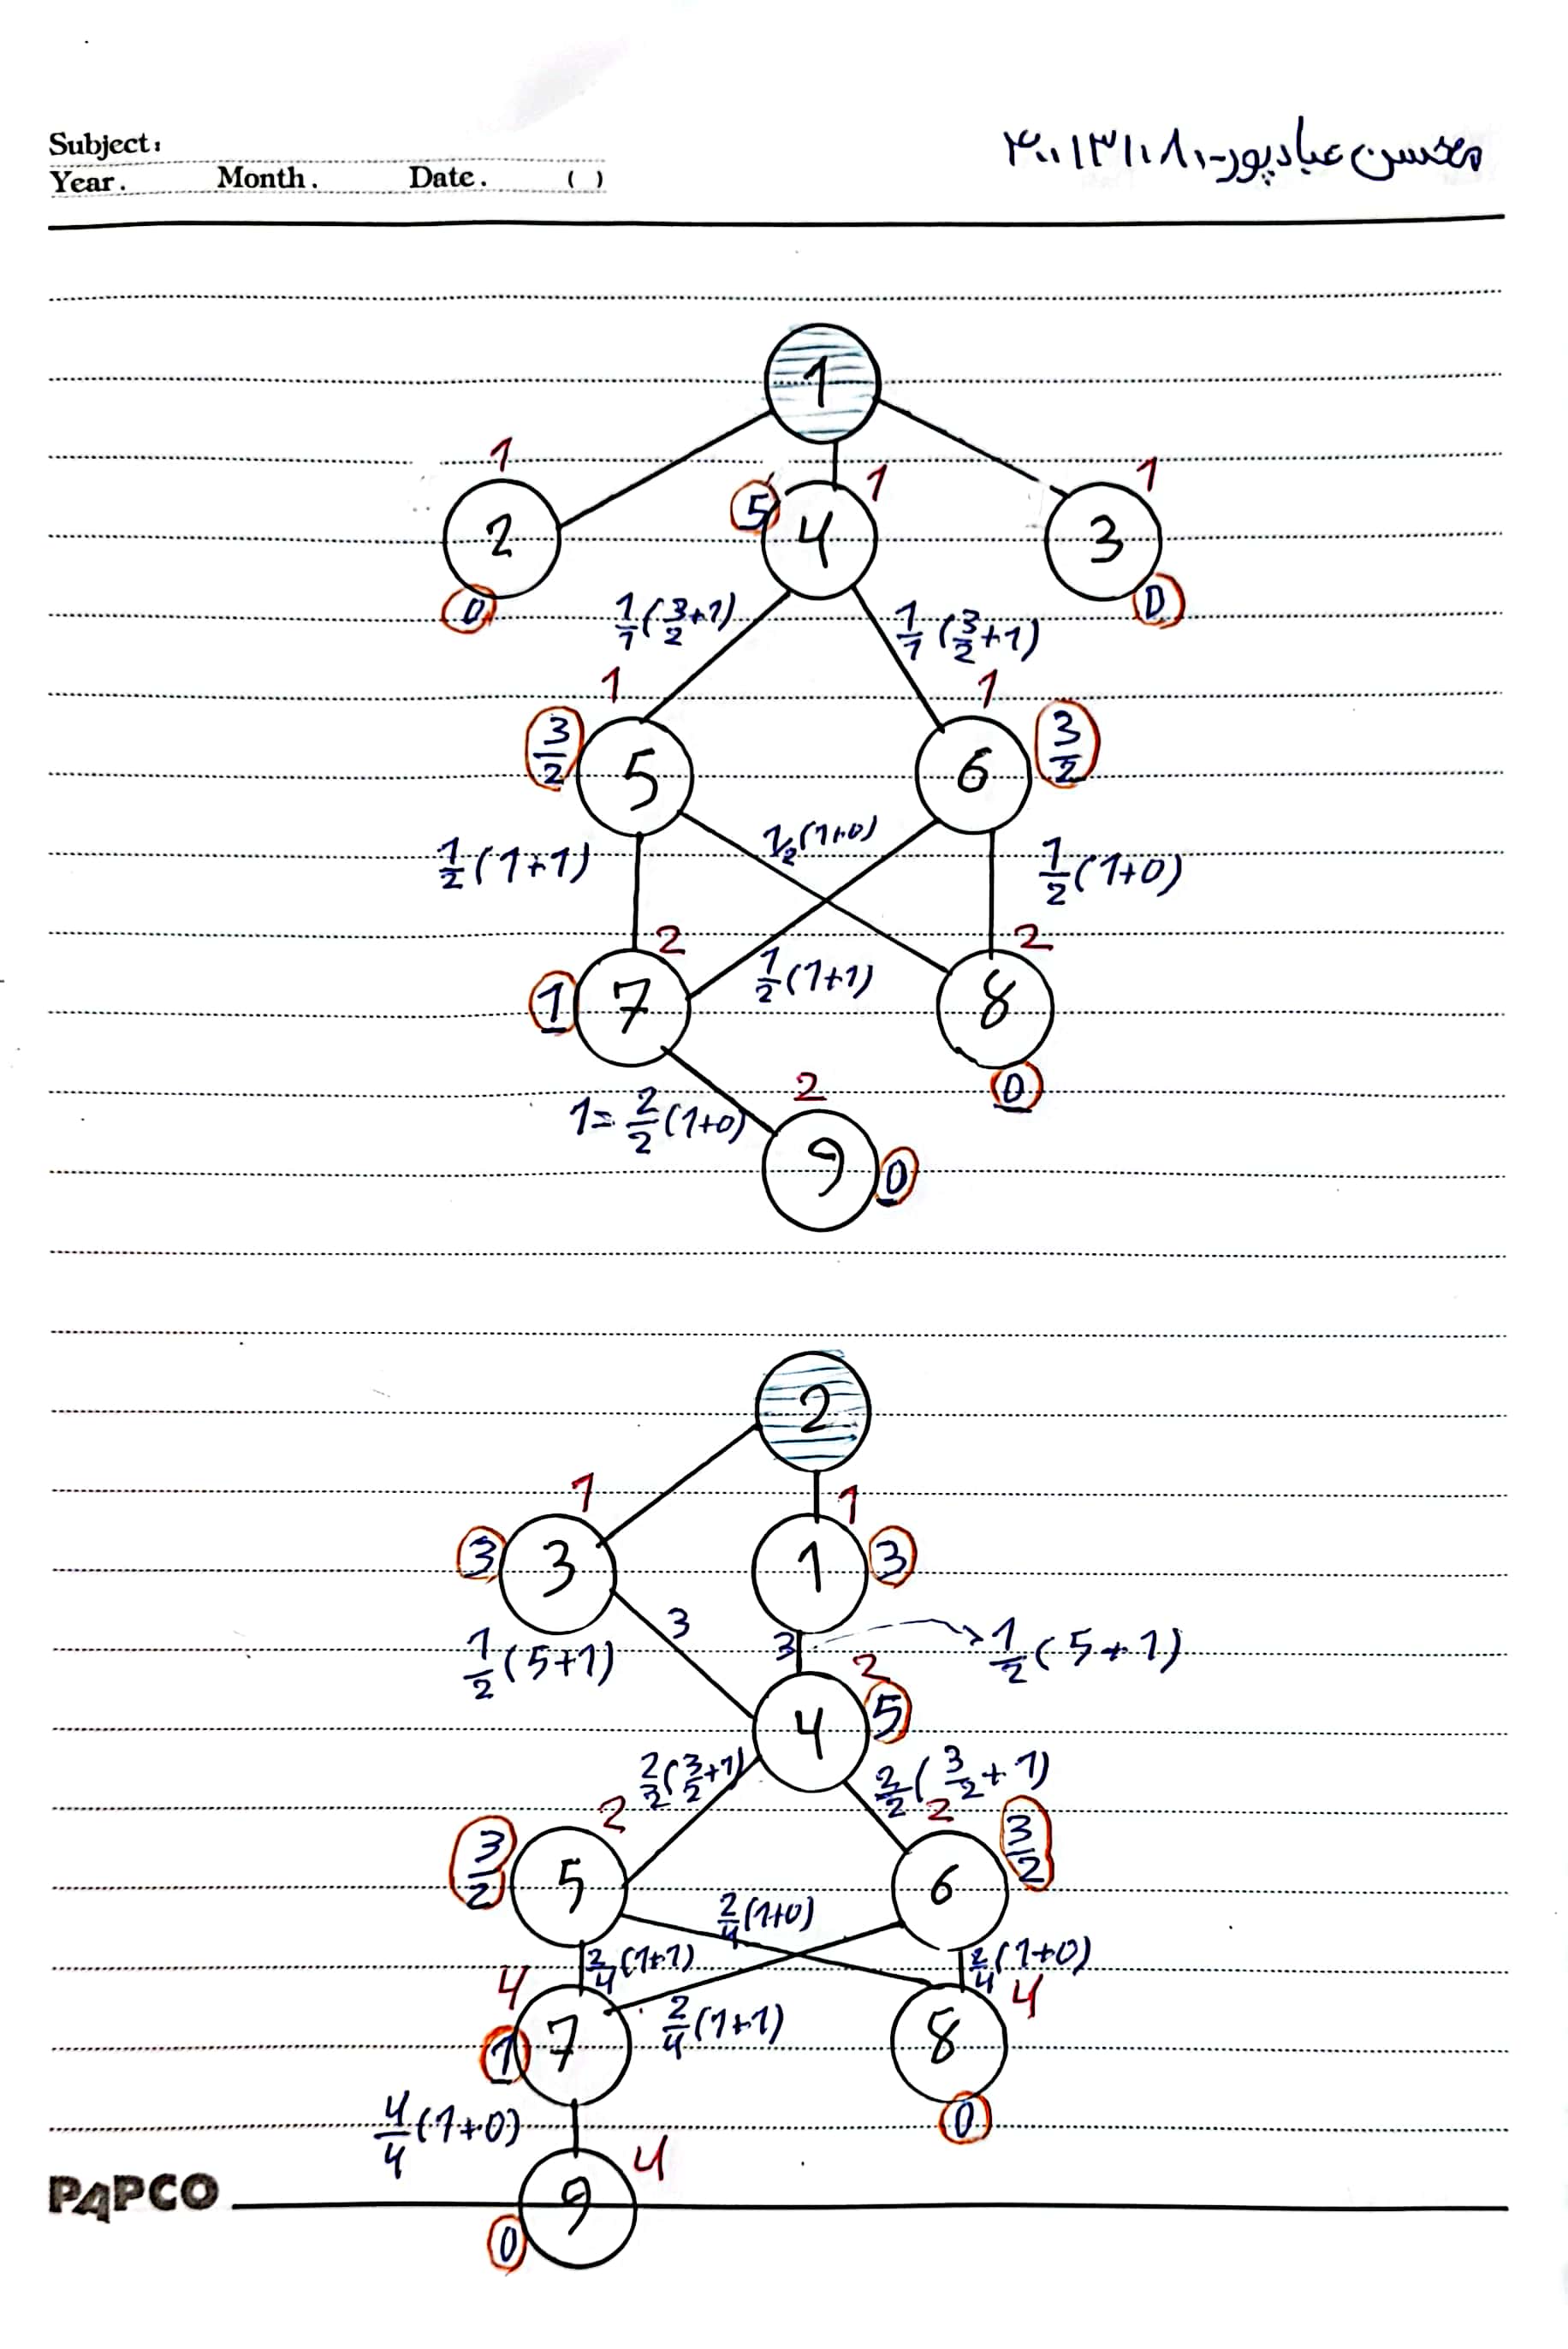 Subject:
Year. Month. Date. ( )
محسن عبادپور-۴۰۰۱۳۱۰۸۰
1
1
1
1
2
5
4
3
0
0
1/1(3/2+1)
1/1(3/2+1)
1
1
3/2
5
6
3/2
1/2(1+1)
1/2(1+0)
1/2(1+0)
2
2
1/2(1+1)
1
7
8
0
2
1=2/2(1+0)
9
0
2
1
1
3
3
1
3
3
3
1/2(5+1)
1/2(5+1)
2
4
5
2/2(3/2+1)
2/2(3/2+1)
2
2
3/2
5
6
3/2
2/4(1+0)
2/4(1+1)
2/4(1+0)
4
4
2/4(1+1)
1
7
8
0
4/4(1+0)
4
PAPCO
9
0